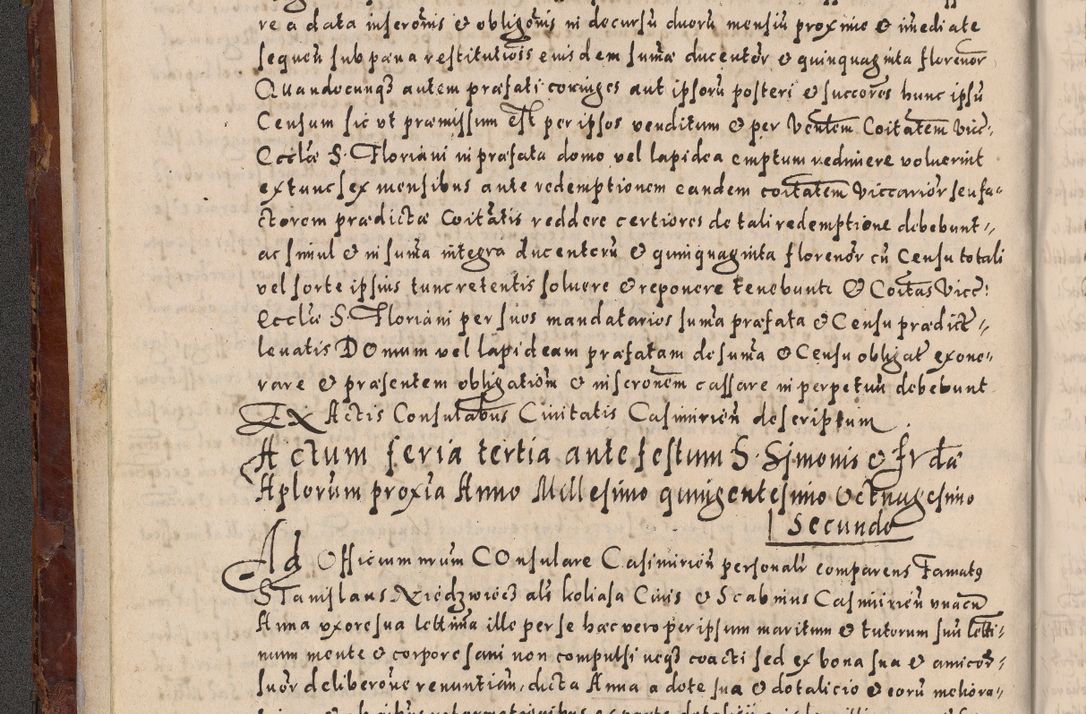 re a data inseronis & obligonis in decursu duoru mensiu proximo & imediate
sequen sub pæna restitutioss eiusdem sumæ ducentor & quinquaginta florenor
Quandocunq3 autem præfati coniuges aut ipsoru posteri & succores hunc ipsu
Censum sic ut præmissum est per ipsos venditum & per Ventem Coitatem Vicc:
Eccliæ S. Floriani in præfata domo vel lapidea emptum redimere voluerint
ex tunc sex mensibus ante redemptionem eandem coitatem Viccarior seu fa-
ctorem prædictæ Coitatis reddere certiores de tali redemptione debebunt,
ac simul & in suma integra ducentoru & quinquaginta florenor cu Censu totali
vel sorte ipsius tunc retentis soluere & reponere tenebunt & Coitas Vicc:
Eccliæ S. Floriani per suos mandatarios suma præfata & Censu prædict
leuatis DOmum vel lapideam præfatam de suma & Censu obligat exone-
rare & præsentem obligationem & inscronem cassare in perpetuu debebunt
Ex Actis Consularibus Ciuitatis Casimirien descriptum.
Actum feria tertia ante festum S. Simonis & Iudæ
Aplorum proxia Anno Millesimo quingentesimo Octuagesimo
Secundo
Ad Officium nrum COnsulare Casimirien personalr comparens Famatus
Stanislaus Niedzwiecz als koliasa Ciuis & Scabinus Casimirien unacu
Anna uxore sua lettima ille per se hæc vero per ipsum maritum & tutorum suu letti-
mum mente & corpore sani non compulsi neq3 coacti sed ex bona sua & amicor
suor deliberone renuntian, dicta Anna a dote sua & dotalicio & eoru meliora-